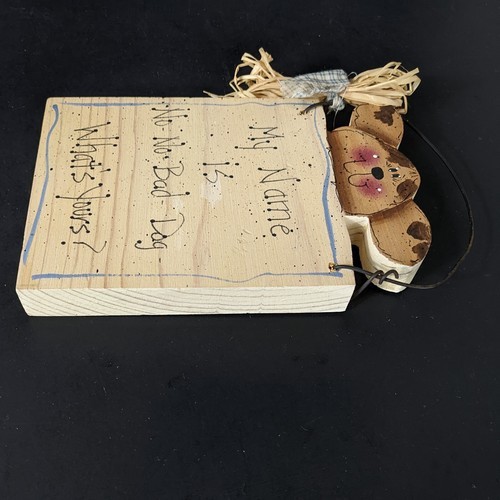 My Name
Is
No-No-Bad-Dog
What's Yours?